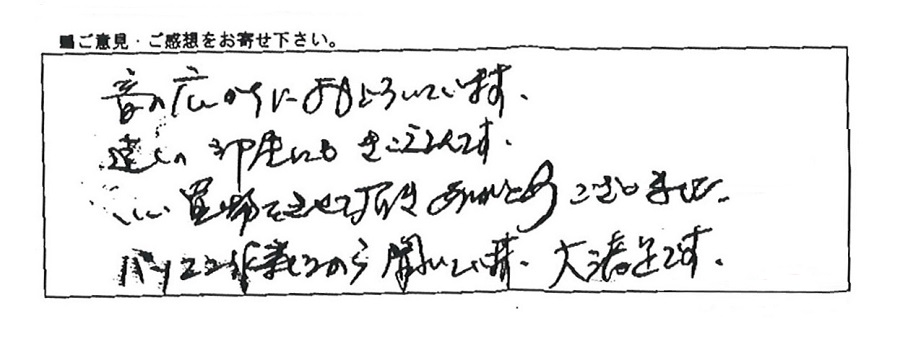 ■ご意見・ご感想をお寄せ下さい。
音の広がりにおどろいています。
遠くの部屋にもきこえるんです。
いい買物をさせて頂きありがとうございました。
パソコン作業しながら聞いています。大満足です。